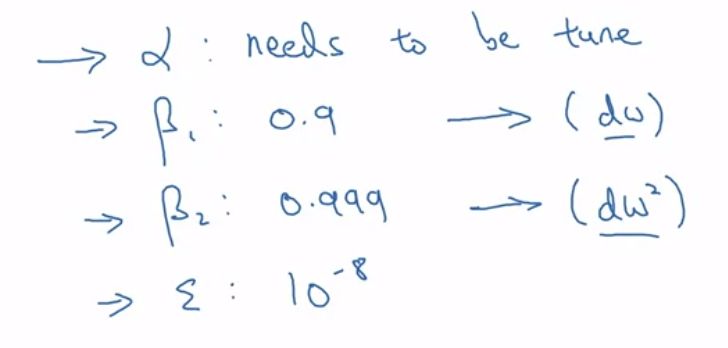 → α : needs to be tune
→ β₁ : 0.9 → (dw)
→ β₂ : 0.999 → (dw²)
→ ε : 10⁻⁸